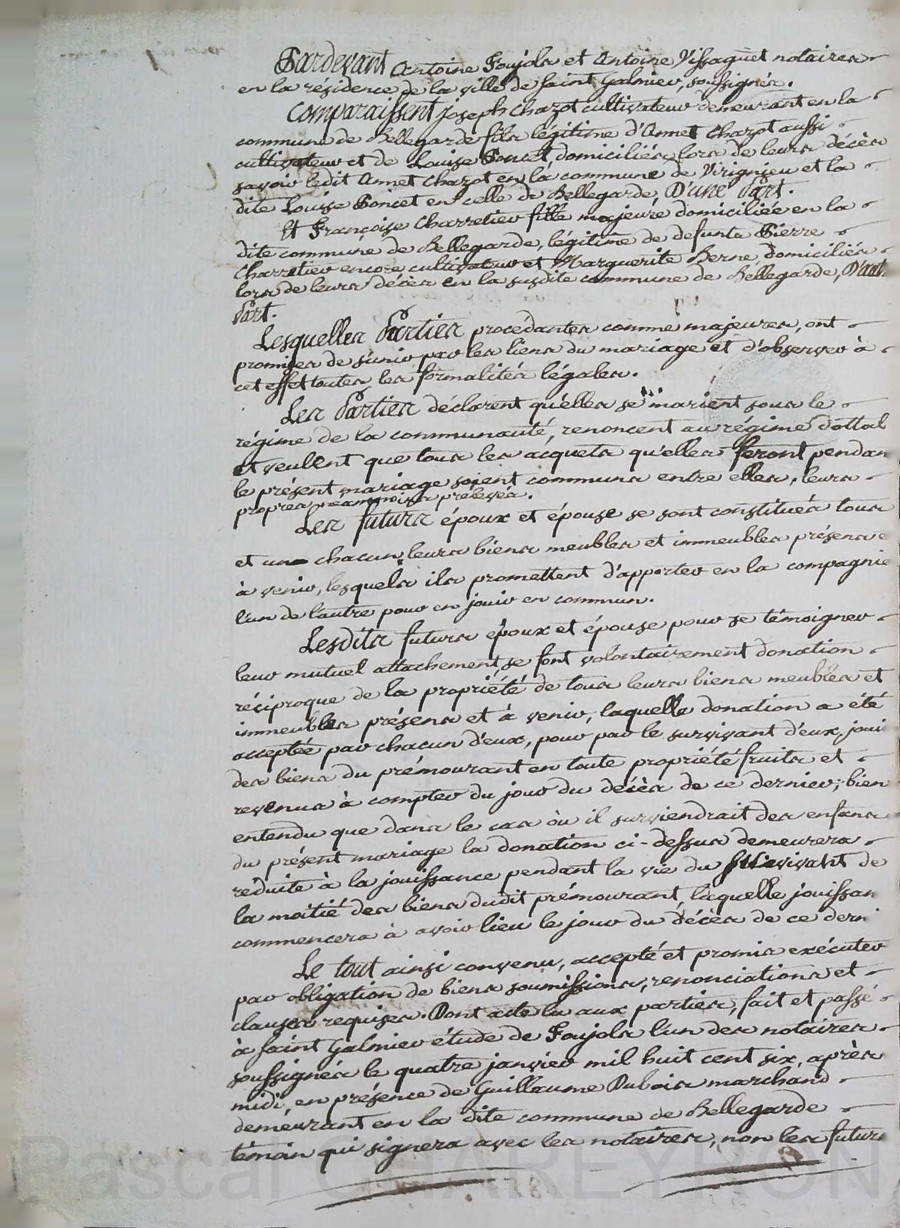 Pardevant Antoine Foujols et Antoine Vissaguet notaires
en la résidence de la ville de Saint Galmier, soussignés.
Comparaissent joseph Chazot cultivateur demeurant en la
commune de Bellegarde fils légitime d'Annet Chazot aussi
cultivateur et de Louise Poncet, domiciliés lors de leurs décès
savoir ledit Annet Chazot en la commune de Virignieu et la
dite Louise Poncet en celle de Bellegarde, D'une Part.
Et Françoise Charretier fille majeure domiciliée en la
dite commune de Bellegarde, légitime de défunts Pierre
Charretier encore cultivateur et Marguerite Berne domiciliés
lors de leurs décès en la susdite commune de Bellegarde, D'aut.
Part.
Lesquelles Parties procédantes comme majeures, ont
promises de s'unir par les liens du mariage et d'observer à
cet effet toutes les formalités légales.
Les Parties déclarent qu'elles se marient sous le
régime de la communauté, renoncent au régime dottal
et veulent que tous les acquets qu'elles feront pendan
le présent mariage soient communs entre elles, leurs
propres néanmoins prélevés.
Les futurs époux et épouse se sont constitués tous
et un chacun leurs biens meubles et immeubles présens e
à venir, lesquels ils promettent d'apporter en la compagnie
l'un de l'autre pour en jouir en commun.
Lesdits futurs époux et épouse pour se témoigner
leur mutuel attachement, se font volontairement donation
réciproque de la propriété de tous leurs biens meubles et
immeubles présens et à venir, laquelle donation a été
acceptée par chacun d'eux, pour par le survivant d'eux, joui
des biens du prémourant en toute propriété fruits et
revenus à compter du jour du décès de ce dernier; bien
entendu que dans le cas où il surviendrait des enfans
du présent mariage la donation ci-dessus demeurera
réduite à la jouissance pendant la vie du survivant de
la moitié des biens dudit prémourant laquelle jouissan
commencera à avoir lieu le jour du décès de ce derni
Le tout ainsi convenu, accepté et promis exécuter
par obligation de biens soumissions, renonciations et
clauses requises. Dont acte lu aux parties, fait et passé
à Saint Galmier étude de Foujols l'un des notaires
soussignés le quatre janvier mil huit cent six, après
midi, en présence de Guillaume Dubois marchand
demeurant en la dite commune de Bellegarde
témoin qui signera avec les notaires, non les futurs
Pascal CHAREYRON